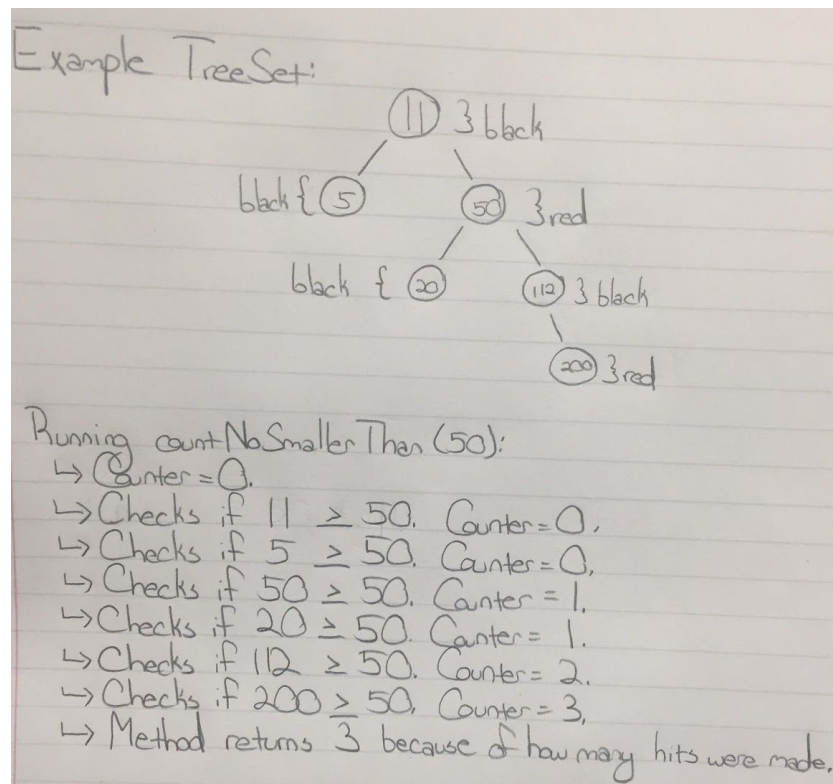 Example TreeSet:
11 } black
black { 5 50 } red
black { 20 112 } black
200 } red
Running countNoSmallerThan (50):
↳ Counter = 0.
↳ Checks if 11 ≥ 50. Counter = 0.
↳ Checks if 5 ≥ 50. Counter = 0.
↳ Checks if 50 ≥ 50. Counter = 1.
↳ Checks if 20 ≥ 50. Counter = 1.
↳ Checks if 112 ≥ 50. Counter = 2.
↳ Checks if 200 ≥ 50. Counter = 3.
↳ Method returns 3 because of how many hits were made.